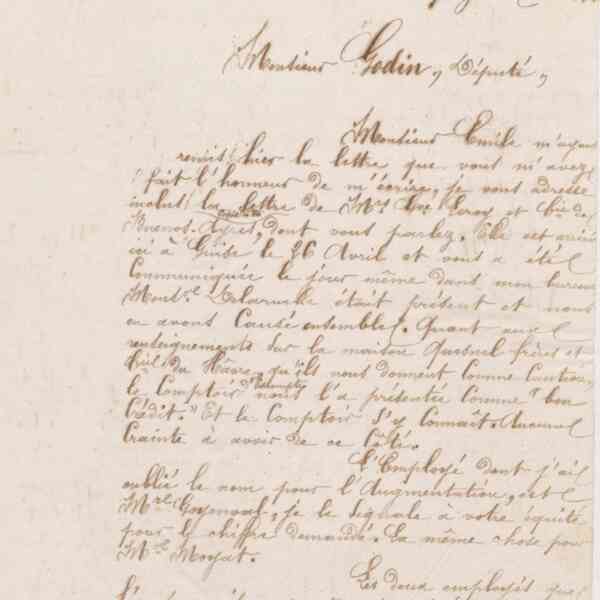 Monsieur Godin, Député,
Monsieur Emile m'ayant
remis hier la lettre que vous m'avez
fait l'honneur de m'écrire, je vous adresse
inclus la lettre de Mrs Leroy et Cie de
Buenos-Ayres, dont vous parlez. Elle est arrivée
ici à Guise le 26 Avril et vous a été
Communiquée le jour même dans mon bureau
Delaruelle était présent et nous
en avons Causé ensemble. Quant aux
renseignements sur la maison Quesnel frères et
du Havre, qu'ils nous donnent comme Caution,
le Comptoir d'Escompte nous l'a présentée Comme "bon
Crédit." Et le Comptoir s'y Connaît. Aucune
Crainte à avoir de ce Côté.
L'Employé dont j'ai
oublié le nom pour l'Augmentation, est
je le signale à votre équité
pour le chiffre demandé. La même chose pour
Moyat.
Les deux employés que